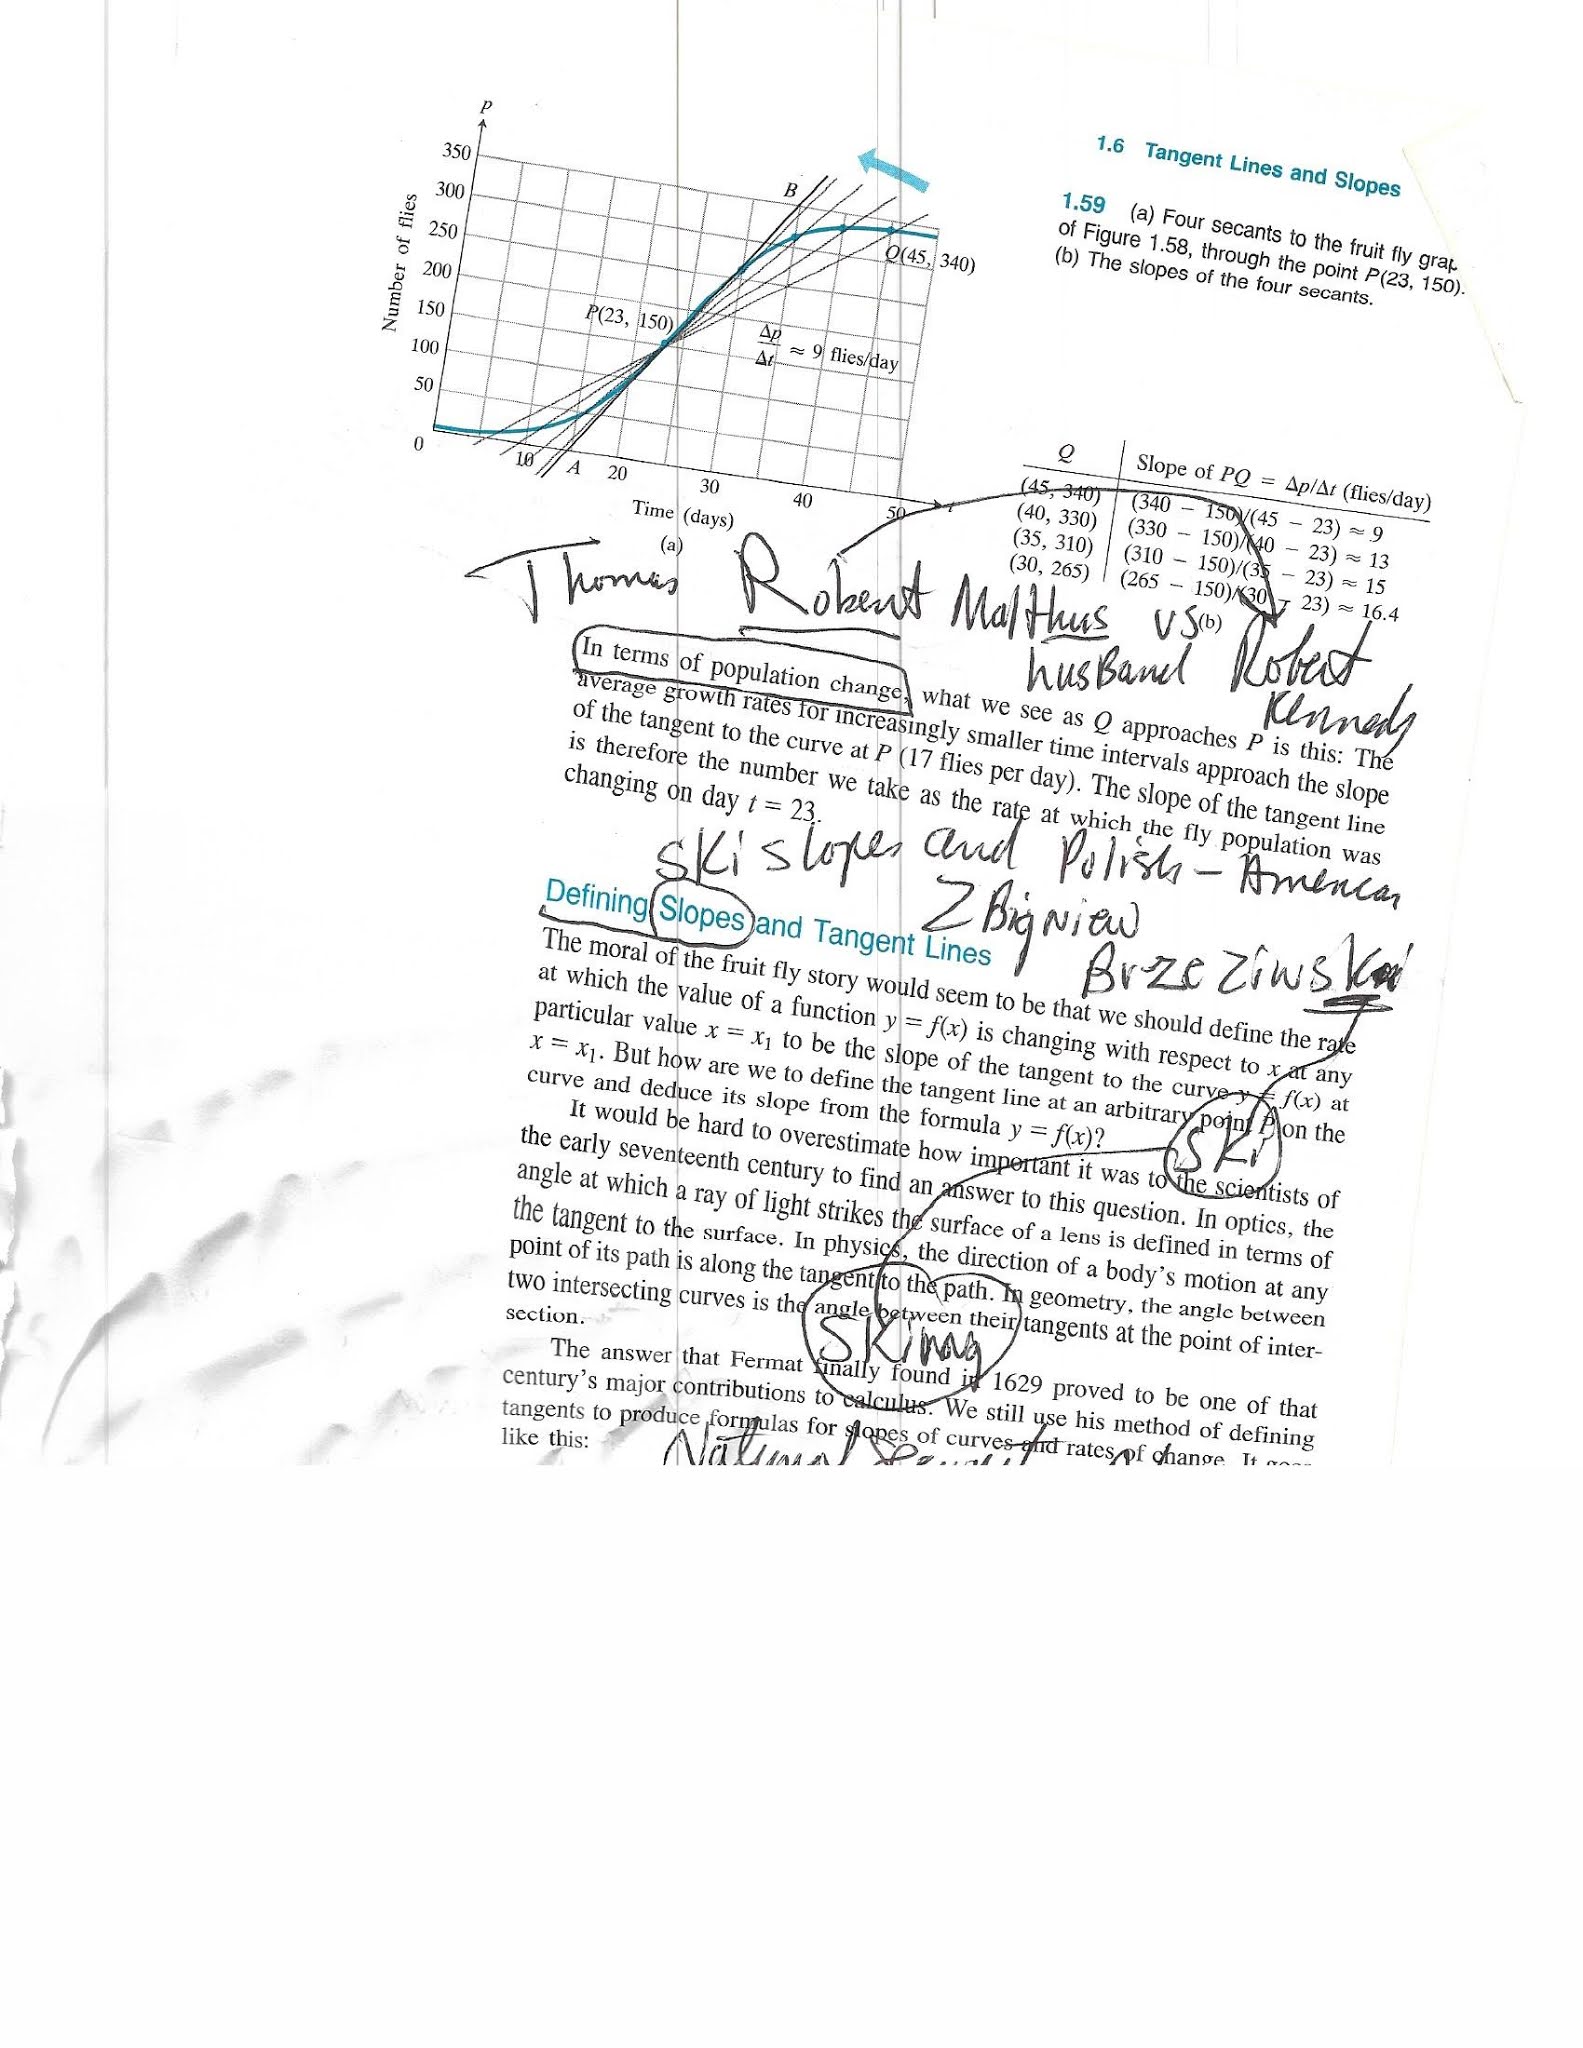 1.6 Tangent Lines and Slopes
p
350
300
250
200
150
100
50
0
Number of flies
B
Q(45, 340)
P(23, 150)
Δp/Δt ≈ 9 flies/day
10
A
20
30
40
50
t
Time (days)
(a)
1.59 (a) Four secants to the fruit fly
of Figure 1.58, through the point P(23, 150).
(b) The slopes of the four secants.
Q Slope of PQ = Δp/Δt (flies/day)
(45, 340) (340 − 150)/(45 − 23) ≈ 9
(40, 330) (330 − 150)/(40 − 23) ≈ 13
(35, 310) (310 − 150)/(35 − 23) ≈ 15
(30, 265) (265 − 150)/(30 − 23) ≈ 16.4
(b)
Thomas Robert Malthus vs
husBand Robert
Kennedy
In terms of population change, what we see as Q approaches P is this: The
average growth rates for increasingly smaller time intervals approach the slope
of the tangent to the curve at P (17 flies per day). The slope of the tangent line
is therefore the number we take as the rate at which the fly population was
changing on day t = 23.
ski slopes and Polish - American
ZBigniew
Brzezinski
Defining Slopes and Tangent Lines
The moral of the fruit fly story would seem to be that we should define the rate
at which the value of a function y = f(x) is changing with respect to x at any
particular value x = x₁ to be the slope of the tangent to the curve y = f(x) at
x = x₁. But how are we to define the tangent line at an arbitrary point P on the
curve and deduce its slope from the formula y = f(x)?
SKi
It would be hard to overestimate how important it was to the scientists of
the early seventeenth century to find an answer to this question. In optics, the
angle at which a ray of light strikes the surface of a lens is defined in terms of
the tangent to the surface. In physics, the direction of a body's motion at any
point of its path is along the tangent to the path. In geometry, the angle between
two intersecting curves is the angle between their tangents at the point of inter-
section.
SKiing
The answer that Fermat finally found in 1629 proved to be one of that
century's major contributions to calculus. We still use his method of defining
tangents to produce formulas for slopes of curves and rates of change. It
like this:
National Security